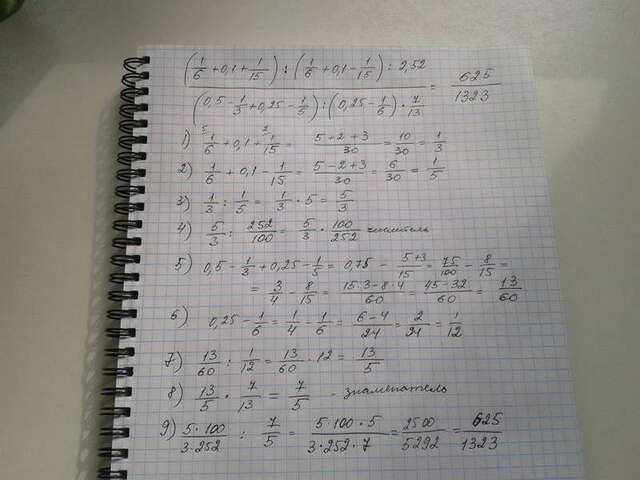 (1/6 + 0,1 + 1/15) : (1/6 + 0,1 - 1/15) : 2,52
(0,5 - 1/3 + 0,25 - 1/5) : (0,25 - 1/6) · 7/13 = 625/1323
1) 5 1/6 + 0,1 + 2 1/15 = (5 + 2 + 3)/30 = 10/30 = 1/3
2) 1/6 + 0,1 - 1/15 = (5 - 2 + 3)/30 = 6/30 = 1/5
3) 1/3 : 1/5 = 1/3 · 5 = 5/3
4) 5/3 : 252/100 = 5/3 · 100/252 числитель
5) 0,5 - 1/3 + 0,25 - 1/5 = 0,75 - (5+3)/15 = 75/100 - 8/15 =
= 3/4 - 8/15 = (15·3 - 8·4)/60 = (45 - 32)/60 = 13/60
6) 0,25 - 1/6 = 1/4 - 1/6 = (6 - 4)/24 = 2/24 = 1/12
7) 13/60 : 1/12 = 13/60 · 12 = 13/5
8) 13/5 · 7/13 = 7/5 - знаменатель
9) (5·100)/(3·252) : 7/5 = (5·100·5)/(3·252·7) = 2500/5292 = 625/1323